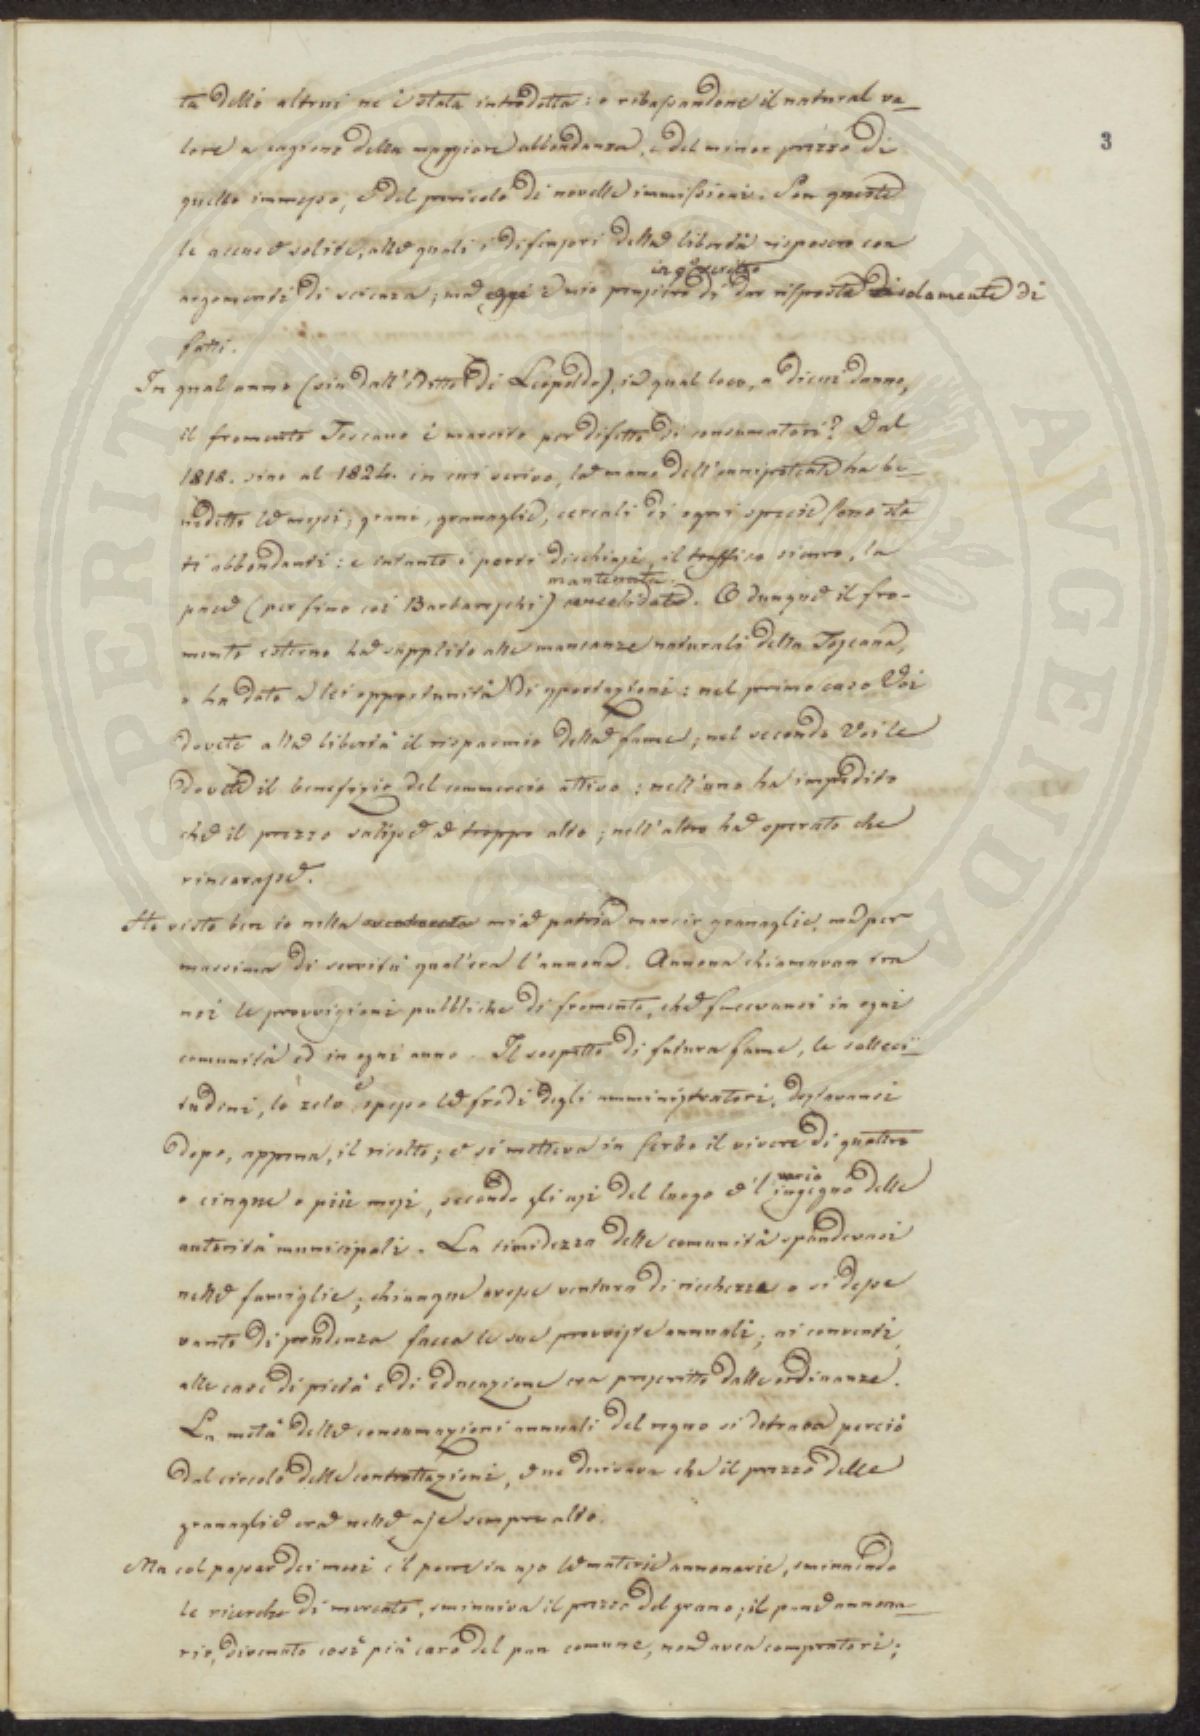 3
ta dello altrui ne è stata introdotta: o ribassandone il natural va_
lore a cagione della maggiore abbondanza, e del minor prezzo di
quello immesso, e del pericolo di novelle immissioni. Son queste
le accuse solite, alle quali i difensori della libertà risposero con
in qo scritto
argomenti di scienza; ma oggi è mio pensiero di dar risposta solamente di
fatti.
In qual anno (sin dall'Editto di Leopoldo), in qual loco, a di cui danno,
il fromento Toscano è marcito per difetto di consumatori? Dal
1818. sino al 1824. in cui scrivo, la mano dell'onnipotente ha be_
nedetto le messi; grani, granaglie, cereali di ogni specie sono sta
ti abbondanti: e intanto i porti dischiusi, il traffico sicuro, la
mantenuta.
pace (per fino coi Barbareschi) consolidata. O dunque il fro-
mento esterno ha supplito alle mancanze naturali della Toscana,
o ha dato a lei opportunità di esportazioni: nel primo caso Voi
dovete alla libertà il risparmio della fame; nel secondo Voi le
dovete il benefizio del commercio attivo: nell'uno ha impedito
che il prezzo salisse a troppo alto; nell'altro ha operato che
rincarasse.
Ho visto ben io nella sventurata mia patria marcir granaglie, ma per
massima di servitù qual'era l'annona. Annona chiamavan tra
noi le provvigioni pubbliche di fromento, che facevansi in ogni
comunità ed in ogni anno. Il sospetto di futura fame, le solleci_
tudini, lo zelo e spesso le frodi degli amministratori, destavansi
dopo, appena, il ricolto; e si metteva in serbo il vivere di quattro
o cinque o più mesi, secondo gli usi del luogo e'l
vario
ingegno delle
autorità municipali. La timidezza delle comunità spandevasi
nelle famiglie; chiunque avesse ventura di ricchezze o si desse
vanto di prudenza facea le sue provviste annuali; ai conventi,
alle case di pietà e di educazione era prescritto dalle ordinanze.
La metà delle consumazioni annuali del regno si detraea perciò
dal circolo delle contrattazioni, e ne derivava che il prezzo delle
granaglie era nelle aje sempre alto.
Ma col passar dei mesi e'l porre in uso le materie annonarie, sminuendo
le ricerche di mercato, sminuiva il prezzo del grano; il pane annona_
rio, divenuto così più caro del pan comune, non avea compratori;
SPERITATE NOVA AVGENDA